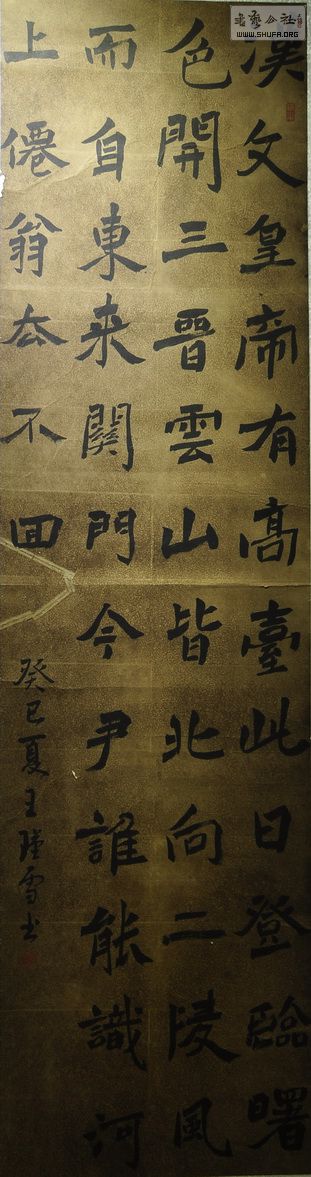 書藝公社
WWW.SHUFA.ORG
漢文皇帝有高臺此日登臨曙
色開三晉雲山皆北向二陵風
而自東来關門今尹誰能識河
上僊翁厺不回
癸巳夏王雪书